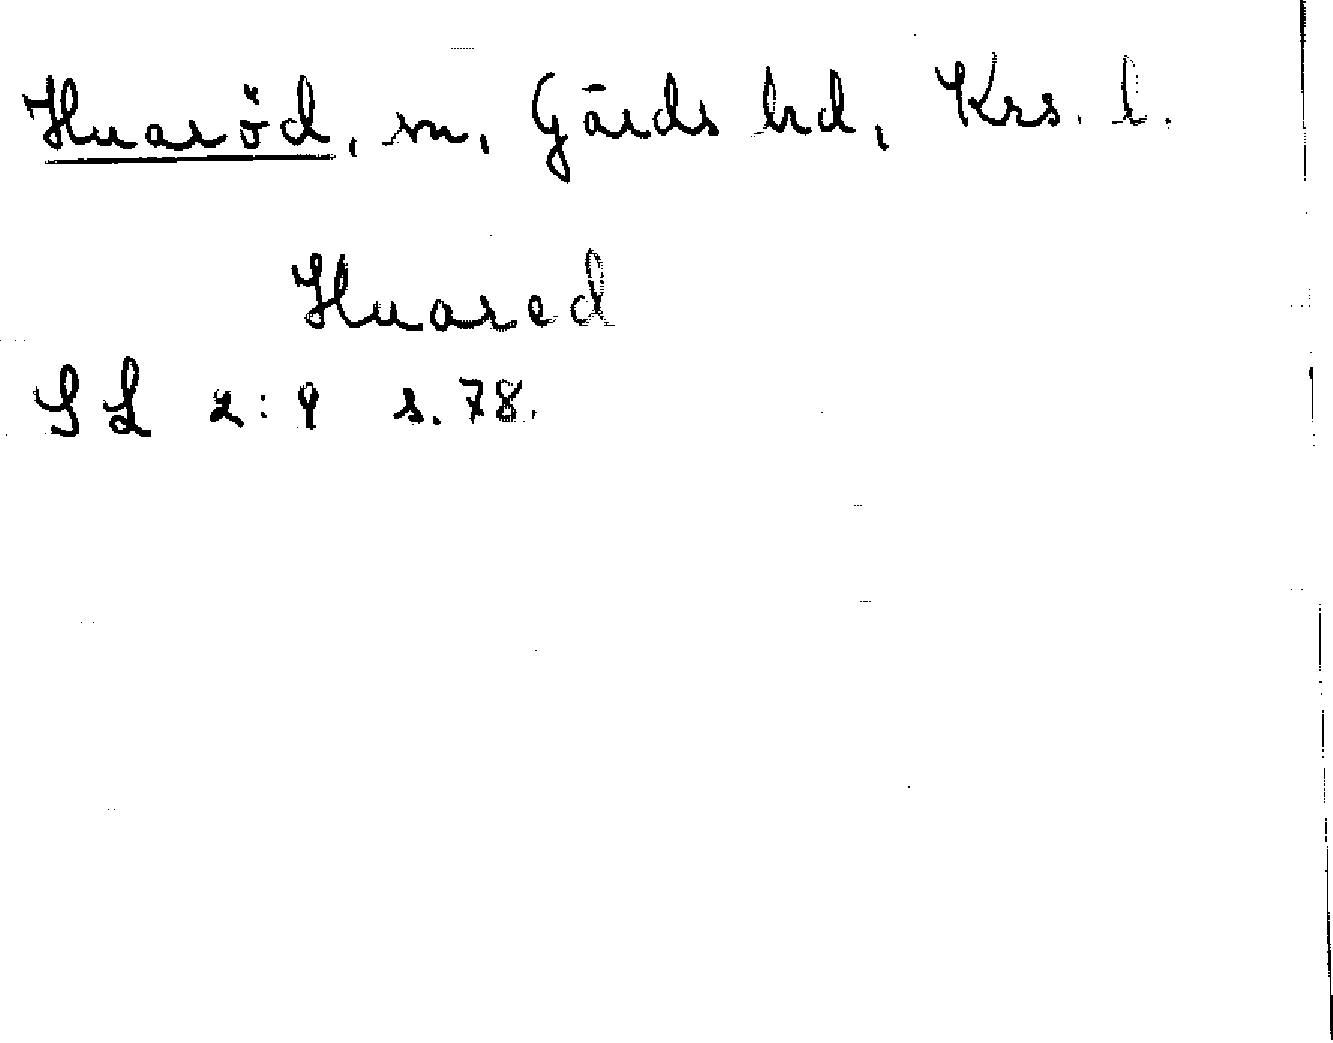 Huaröd, sn, Gärds hd, Krs. l.
Huared
SL 2:9 s. 78.